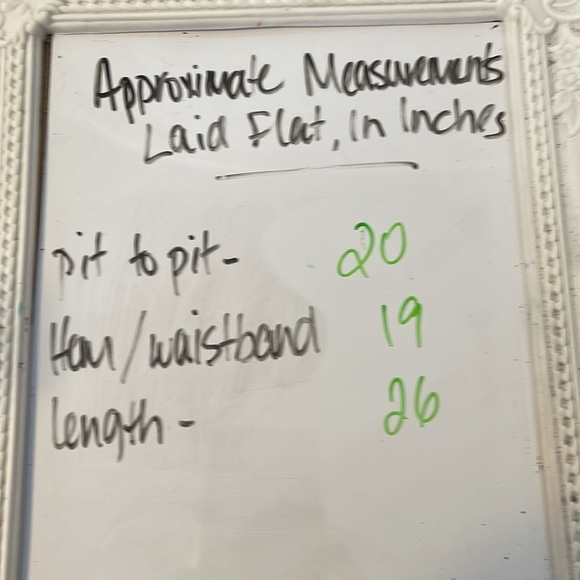 Approximate Measurements
Laid Flat, In Inches
pit to pit- 20
Hem/waistband 19
length- 26